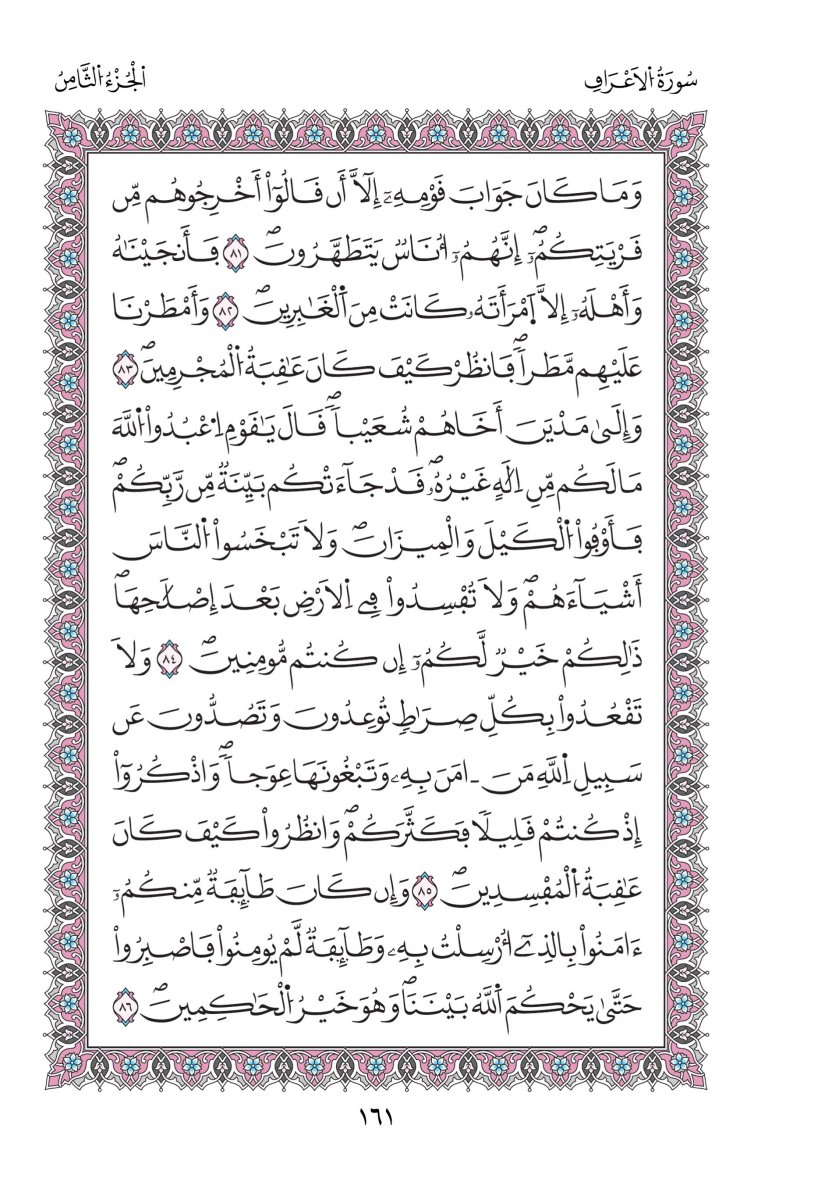 سُورَةُ الاَعْرَافِ
الْجُزْءُ الثَّامِنُ
وَمَا كَانَ جَوَابَ قَوْمِهِۦٓ إِلَّآ أَن قَالُوٓاْ أَخْرِجُوهُم مِّن
قَرْيَتِكُمُۥٓۖ إِنَّهُمُۥٓ أُنَاسٌ يَتَطَهَّرُونَۖ ۝٨١ فَأَنجَيْنَٰهُ
وَأَهْلَهُۥٓ إِلَّا اَمْرَأَتَهُۥ كَانَتْ مِنَ اَلْغَٰبِرِينَۖ ۝٨٢ وَأَمْطَرْنَا
عَلَيْهِم مَّطَراٗۖ فَانظُرْ كَيْفَ كَانَ عَٰقِبَةُ اُلْمُجْرِمِينَۖ ۝٨٣
وَإِلَىٰ مَدْيَنَ أَخَاهُمْ شُعَيْباٗۖ قَالَ يَٰقَوْمِ اِعْبُدُواْ اُللَّهَ
مَا لَكُم مِّنِ اِلَٰهٍ غَيْرُهُۥۖ قَدْ جَآءَتْكُم بَيِّنَةٞ مِّن رَّبِّكُمْۖ
فَأَوْفُواْ اُلْكَيْلَ وَالْمِيزَانَۖ وَلَا تَبْخَسُواْ اُلنَّاسَ
أَشْيَآءَهُمْۖ وَلَا تُفْسِدُواْ فِے اِلَارْضِ بَعْدَ إِصْلَٰحِهَاۖ
ذَٰلِكُمْ خَيْرٞ لَّكُمُۥٓ إِن كُنتُم مُّومِنِينَۖ ۝٨٤ وَلَا
تَقْعُدُواْ بِكُلِّ صِرَٰطٖ تُوعِدُونَ وَتَصُدُّونَ عَن
سَبِيلِ اِللَّهِ مَنَ ـ امَنَ بِهِۦ وَتَبْغُونَهَا عِوَجاٗۖ وَاذْكُرُوٓاْ
إِذْ كُنتُمْ قَلِيلٗا فَكَثَّرَكُمْۖ وَانظُرُواْ كَيْفَ كَانَ
عَٰقِبَةُ اُلْمُفْسِدِينَۖ ۝٨٥ وَإِن كَانَ طَآئِفَةٞ مِّنكُمُۥٓ
ءَامَنُواْ بِالذِےٓ أُرْسِلْتُ بِهِۦ وَطَآئِفَةٞ لَّمْ يُومِنُواْ فَاصْبِرُواْ
حَتَّىٰ يَحْكُمَ اَللَّهُ بَيْنَنَاۖ وَهُوَ خَيْرُ اُلْحَٰكِمِينَۖ ۝٨٦
١٦١